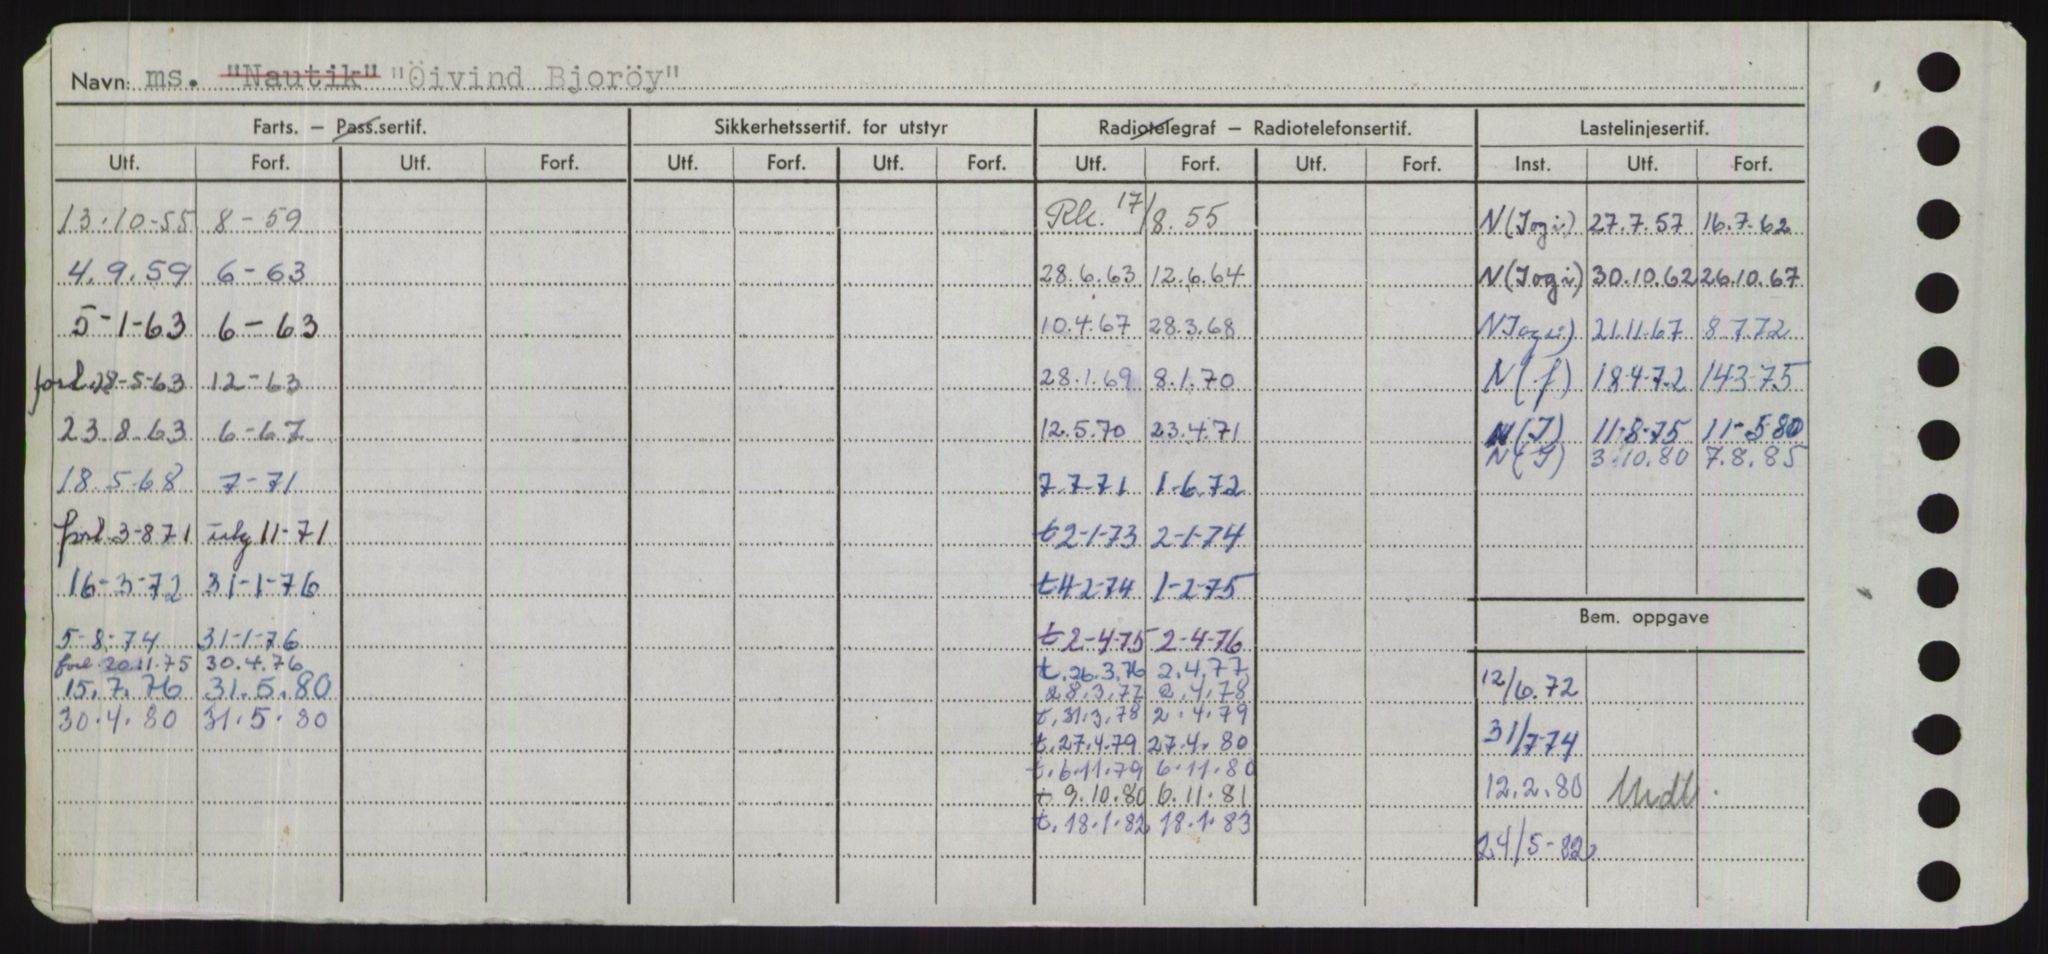 Navn: ms. "Nautik" "Öivind Bjoröy"
Farts. — Pass.sertif. Sikkerhetssertif. for utstyr Radiotelegraf — Radiotelefonsertif. Lastelinjesertif.
Utf. Forf. Utf. Forf. Utf. Forf. Utf. Forf. Utf. Forf. Utf. Forf. Inst. Utf. Forf.
13.10-55 8-59 Rk. 17/8.55 N(I og i) 27.7.57 16.7.62
4.9.59 6-63 28.6.63 12.6.64 N(I og i) 30.10.62 26.10.67
5-1-63 6-63 10.4.67 28.3.68 N I og i) 21.11.67 8 7.72
forl. 28-5-63 12-63 28.1.69 8.1.70 N(f) 18 4-7.2 14 3-75
23.8.63 6-67 12.5.70 23.4.71 N(I) 11-8-75 11-5 80
N(I) 3.10.80 7.8.85
18.5.68 7-71 7.7-71 1-6.72
forl. 3-8 71 11-71 t 2-1-73 2-1-74
16-3-72 31-1-76 t 4-2-74 1-2-75
Bem. oppgave
5-8-74 31-1-76 t 2-4-75 2-4-76
forl. 20.11.75 30.4.76 t. 26.3.76 2.4.77
15.7.76 31.5.80 28.3.77 2.4.78 12/6.72
30.4.80 31.5.80 t. 31.3.78 2.4.79
t. 27.4.79 27.4.80 31/7-74
t. 6.11.79 6.11.80
t 9.10.80 6.11.81 12.2.80 Undt.
t. 18.1.82 18.1.83
24/5-82